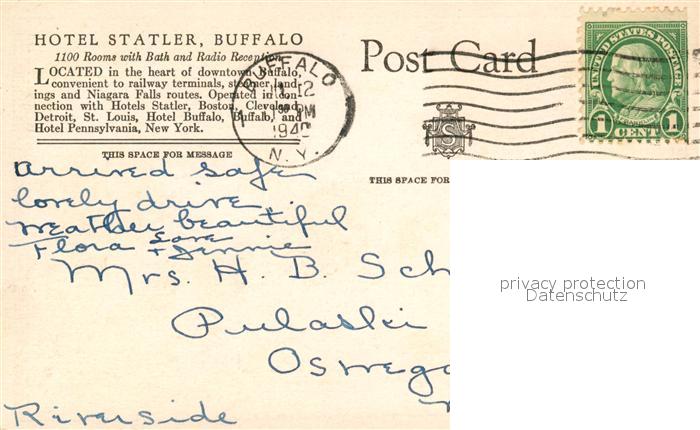 HOTEL STATLER, BUFFALO
1100 Rooms with Bath and Radio Reception
LOCATED in the heart of downtown Buffalo,
convenient to railway terminals, steamer landings
and Niagara Falls routes. Operated in connection
with Hotels Statler, Boston, Cleveland,
Detroit, St. Louis, Hotel Buffalo, Buffalo, and
Hotel Pennsylvania, New York.
THIS SPACE FOR MESSAGE
Post Card
BUFFALO
12
PM
N.Y.
UNITED STATES POSTAGE
FRANKLIN
1 CENT 1
S
THIS SPACE FOR
arrived safe
lovely drive
weather beautiful
Love
Flora + Jennie
Mrs. H. B. Sch
Pulaski
Oswego
Riverside
privacy protection
Datenschutz